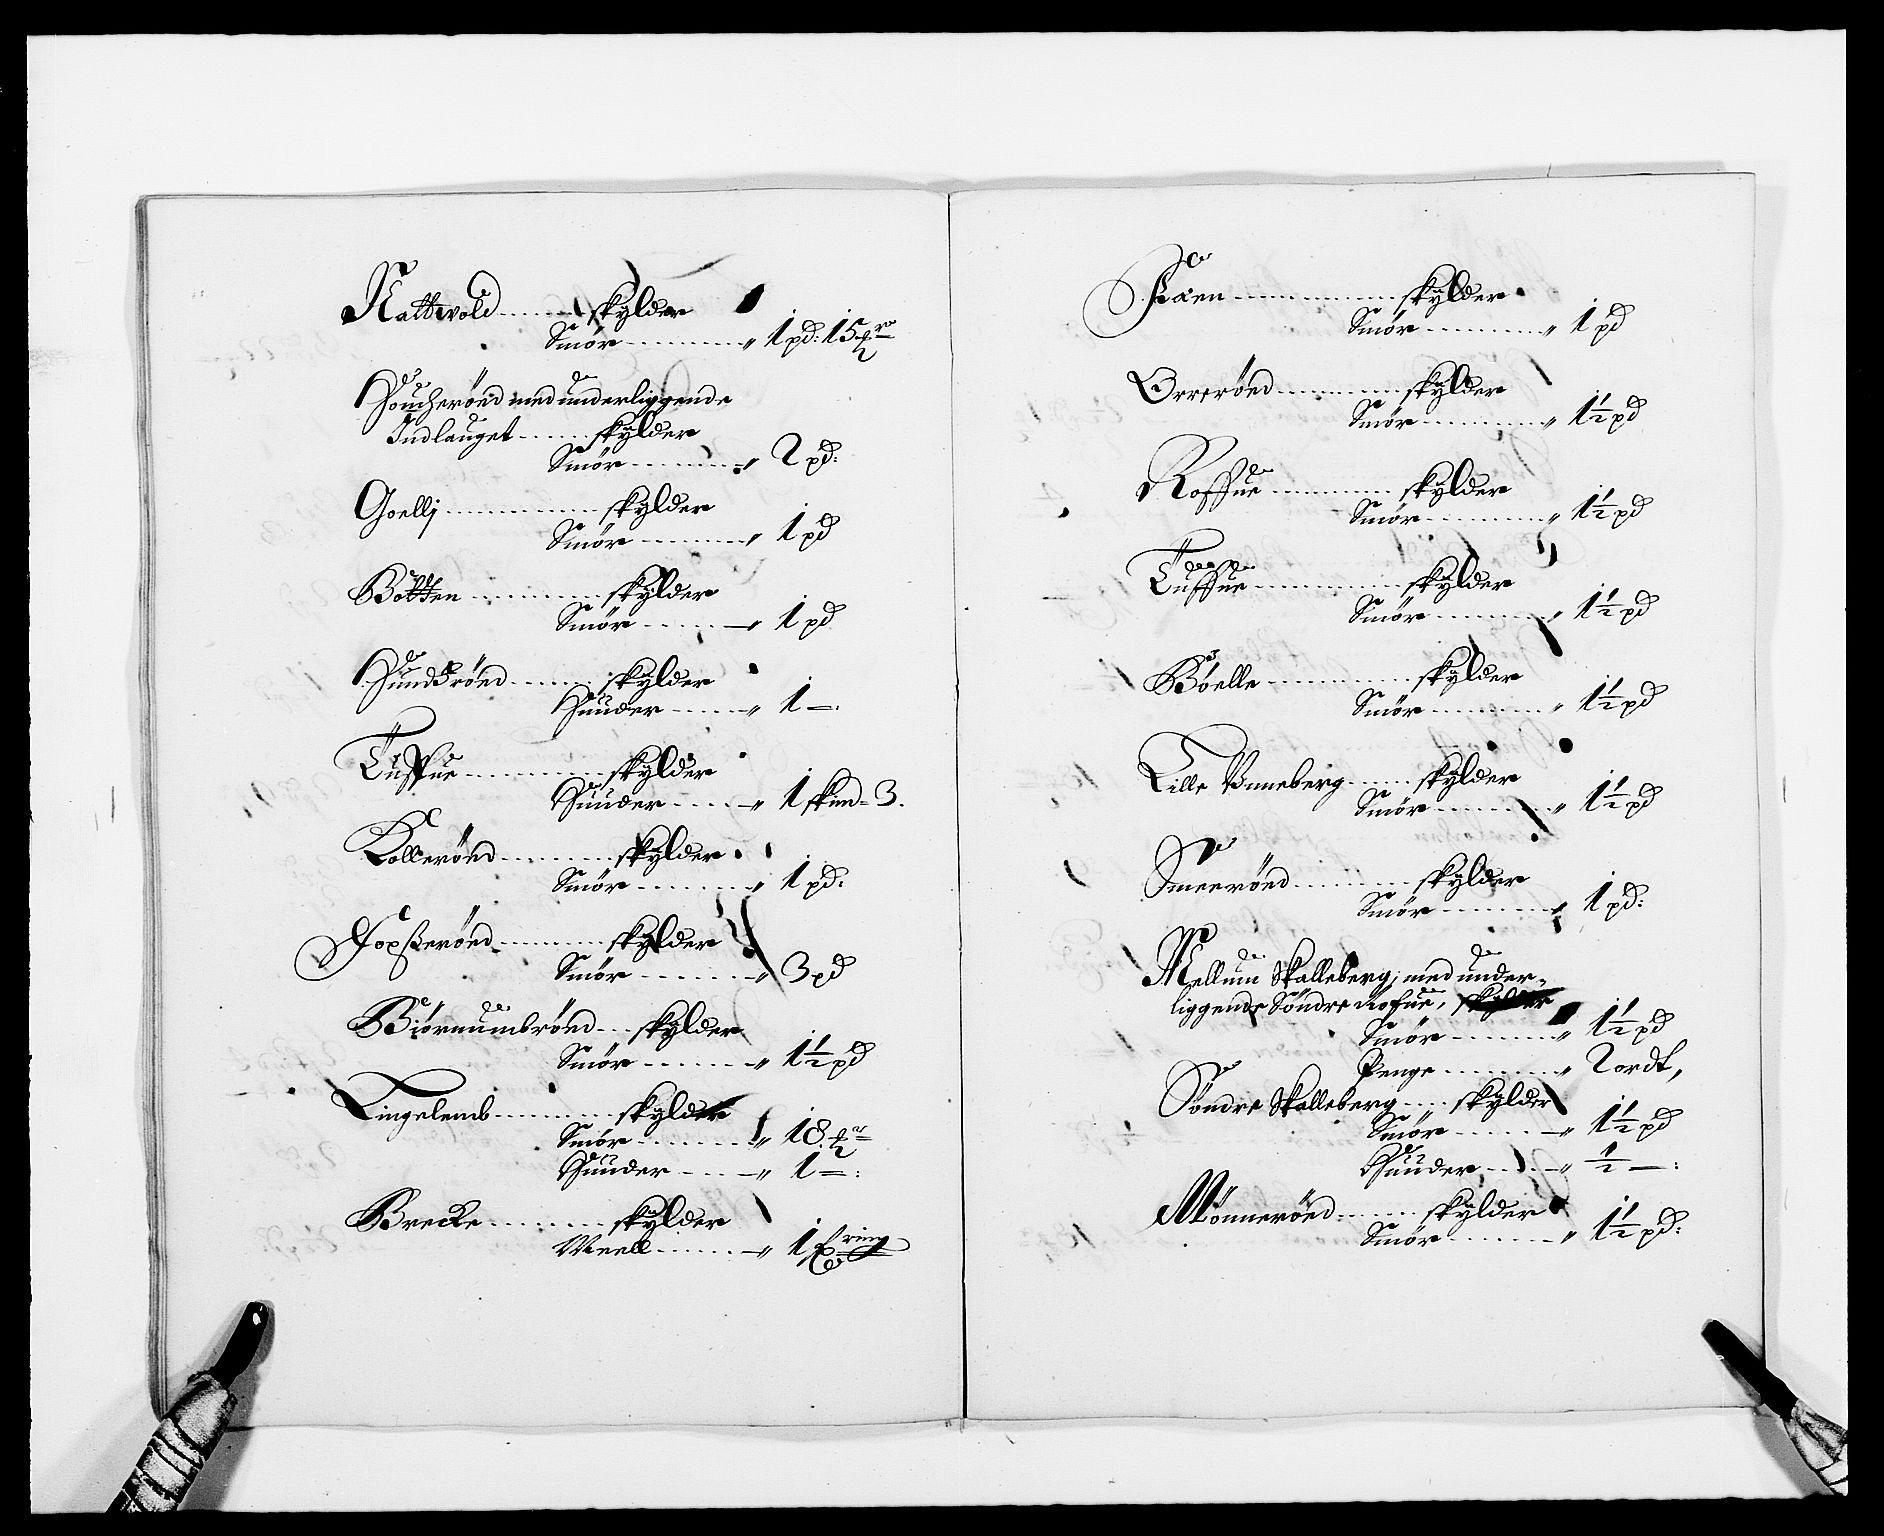 Nattwold ...... skylder
Smör ........ „ 1 pd: 15 ₶r
Houcherönd med underliggende
Indlauget ...... skylder
Smör ........ „ 2 pd:
Goellj ............ skylder
Smör ........ „ 1 pd
Botten ............ skylder
Smör ........ „ 1 pd
Hundsrönd ........ skylder
Huuder ...... „ 1 —:
Tuffue ............ skylder
Huuder ...... „ 1 skind = 3.
Kollerönd ......... skylder
Smör ........ „ 1 pd:
Jopßerönd ......... skylder
Smör ........ „ 3 pd
Biörnumbrönd ... skylder
Smör ........ „ 1½ pd
Lingelemb ......... skylder
Smör ........ „ 18 ₶r
Huuder ...... „ 1 —:
Brecke ......... skylder
Meell ........ „ 1
Faen ............ skylder
Smör ........ „ 1 pd
Orrerönd ......... skylder
Smör ........ „ 1½ pd
Roffue ............ skylder
Smör ........ „ 1½ pd
Tuffue ............ skylder
Smör ........ „ 1½ pd
Böelle ............ skylder
Smör ........ „ 1½ pd
Lille Vnneberg ...... skylder
Smör ........ „ 1½ pd
Smeerönd ......... skylder
Smör ........ „ 1 pd:
Mellum Skalleberg, med under-
liggende Söndre Rofue, skylder
Smör ........ „ 1½ pd
Penge ........ „ 2 ordt,
Söndre Skalleberg .... skylder
Smör ...... „ 1½ pd
Huuder ...... „ ½ —:
Mönnerönd ...... skylder
Smör ...... „ 1½ pd: